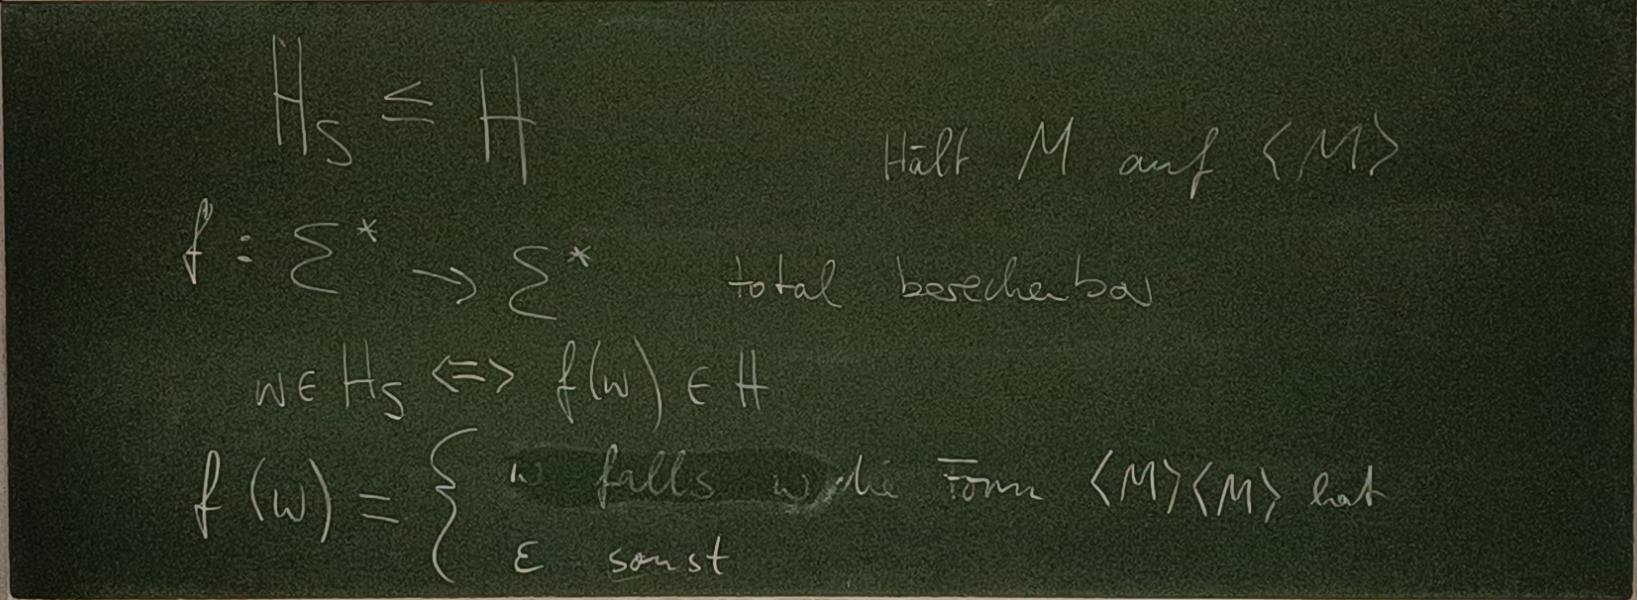 H_S ≤ H
Hält M auf ⟨M⟩
f : Σ* → Σ* total berechenbar
w ∈ H_S ⇔ f(w) ∈ H
f(w) = { w falls w die Form ⟨M⟩⟨M⟩ hat
ε sonst